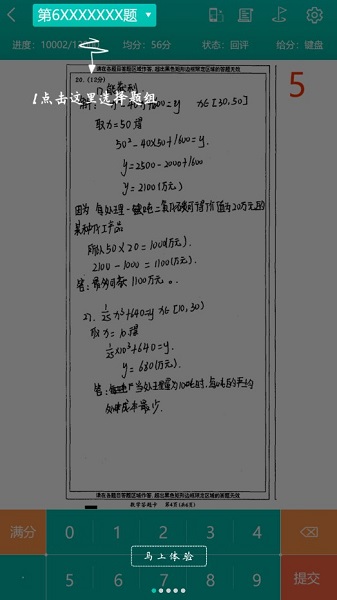 第6XXXXXXX题
进度：10002/12
均分：56分
状态：回评
给分：键盘
请在各题目答题区域作答，超出黑色矩形边框限定区域的答题无效
1点击这里选择题组
5
20.（12分）
x∈[30,50]
取x=50得
50²-40×50+1600=y.
y=2500-2000+1600
y=2100(万元)
因为 每处理一吨二氧化碳可得价值为20万元的
某种化工产品
所以50×20=1000(万元).
2100-1000=1100(万元).
答：最多可获1100万元。
2). 1/25x³+640=y x∈[10,30)
取x=10得
1/25×10³+640=y.
y=680(万元).
答：当处理量为10吨时，每吨的平均
处理成本最少.
请在各题目答题区域作答，超出黑色矩形边框限定区域的答题无效
数学答题卡 第4页(共6页)
满分 0 1 2 3 4
马上体验
5 6 7 8 9 提交